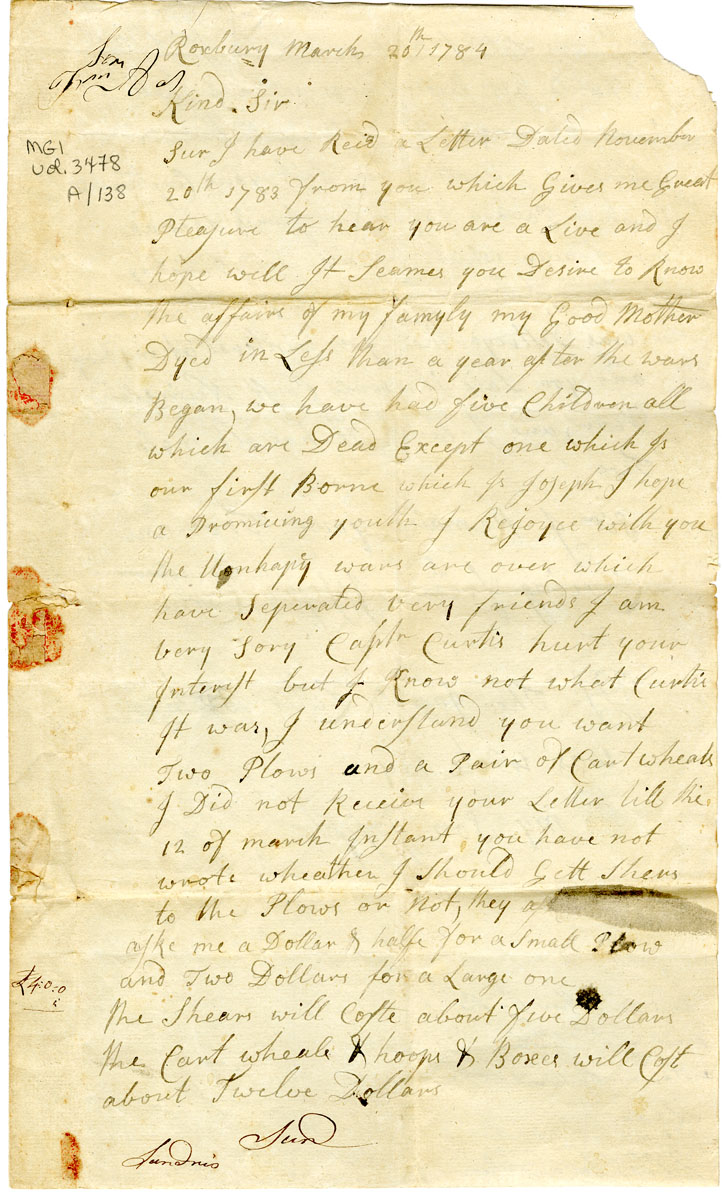 Roxbury March 20th 1784
Kind Sir
MG1
Vol. 3478
A/138
Sur I have Recd a Letter Dated November
20th 1783 from you which Gives me Great
Pleasure to hear you are a Live and I
hope well It Seames you Desire to Know
the affairs of my famyly my Good Mother
Dyed in Less than a year after the wars
Began, we have had five Children all
which are Dead Except one which Is
our first Borne which Is Joseph I hope
a Promicing youth I Rejoyce with you
the Unhapy wars are over which
have Seperated very friends I am
very Sory Capt Curtis hurt your
Interest but I Know not what Curtis
It was, I understand you want
Two Plows and a Pair of Cart wheals
I Did not Receive your Letter till the
12 of march Instant you have not
wrote wheather I Should Gett Shers
to the Plows or Not, they
aske me a Dollar & halfe for a Small Plow
and Two Dollars for a Large one
£4:0:0
the Shears will Coste about five Dollars
the Cart wheals & hoops & Boxes will Cost
about Twelve Dollars